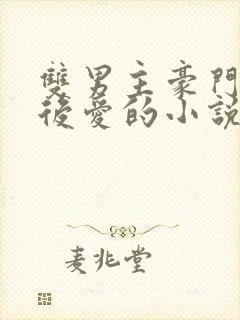 雙男主豪門
後愛的小說
麦兆堂